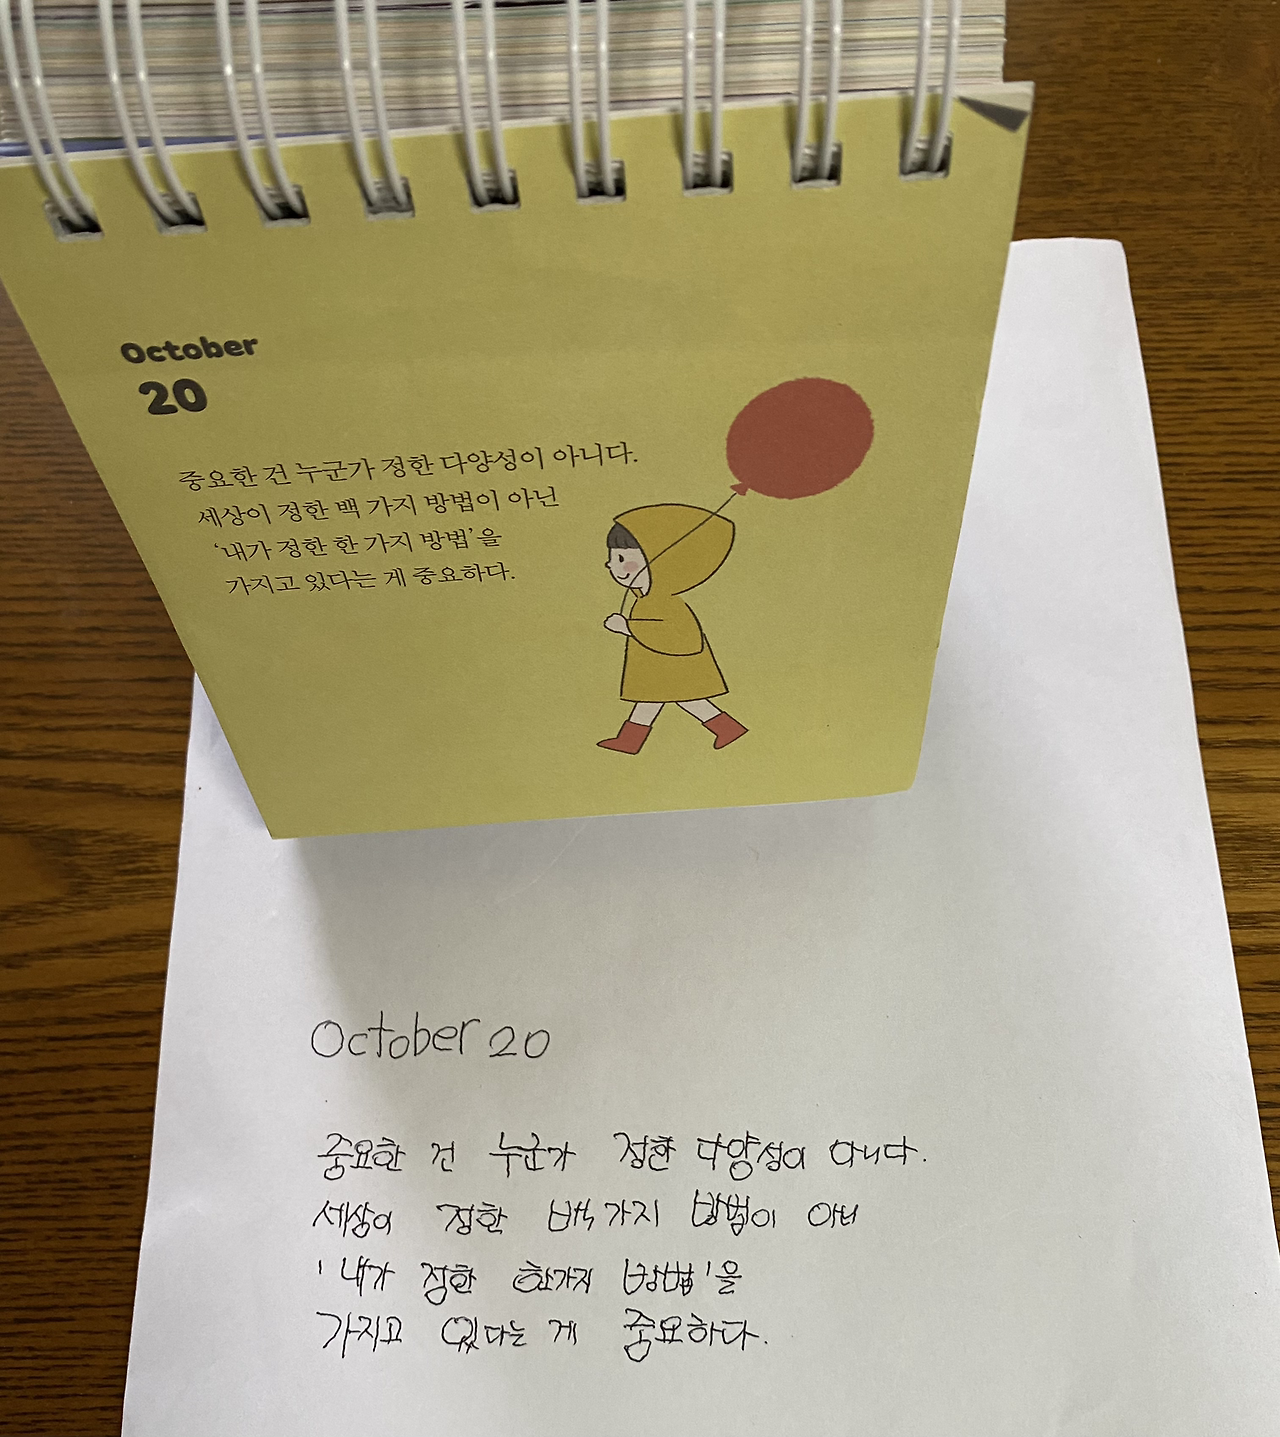 October
20
중요한 건 누군가 정한 다양성이 아니다.
세상이 정한 백 가지 방법이 아닌
‘내가 정한 한 가지 방법’을
가지고 있다는 게 중요하다.
October 20
중요한 건 누군가 정한 다양성이 아니다.
세상이 정한 백 가지 방법이 아닌
'내가 정한 한가지 방법'을
가지고 있다는 게 중요하다.